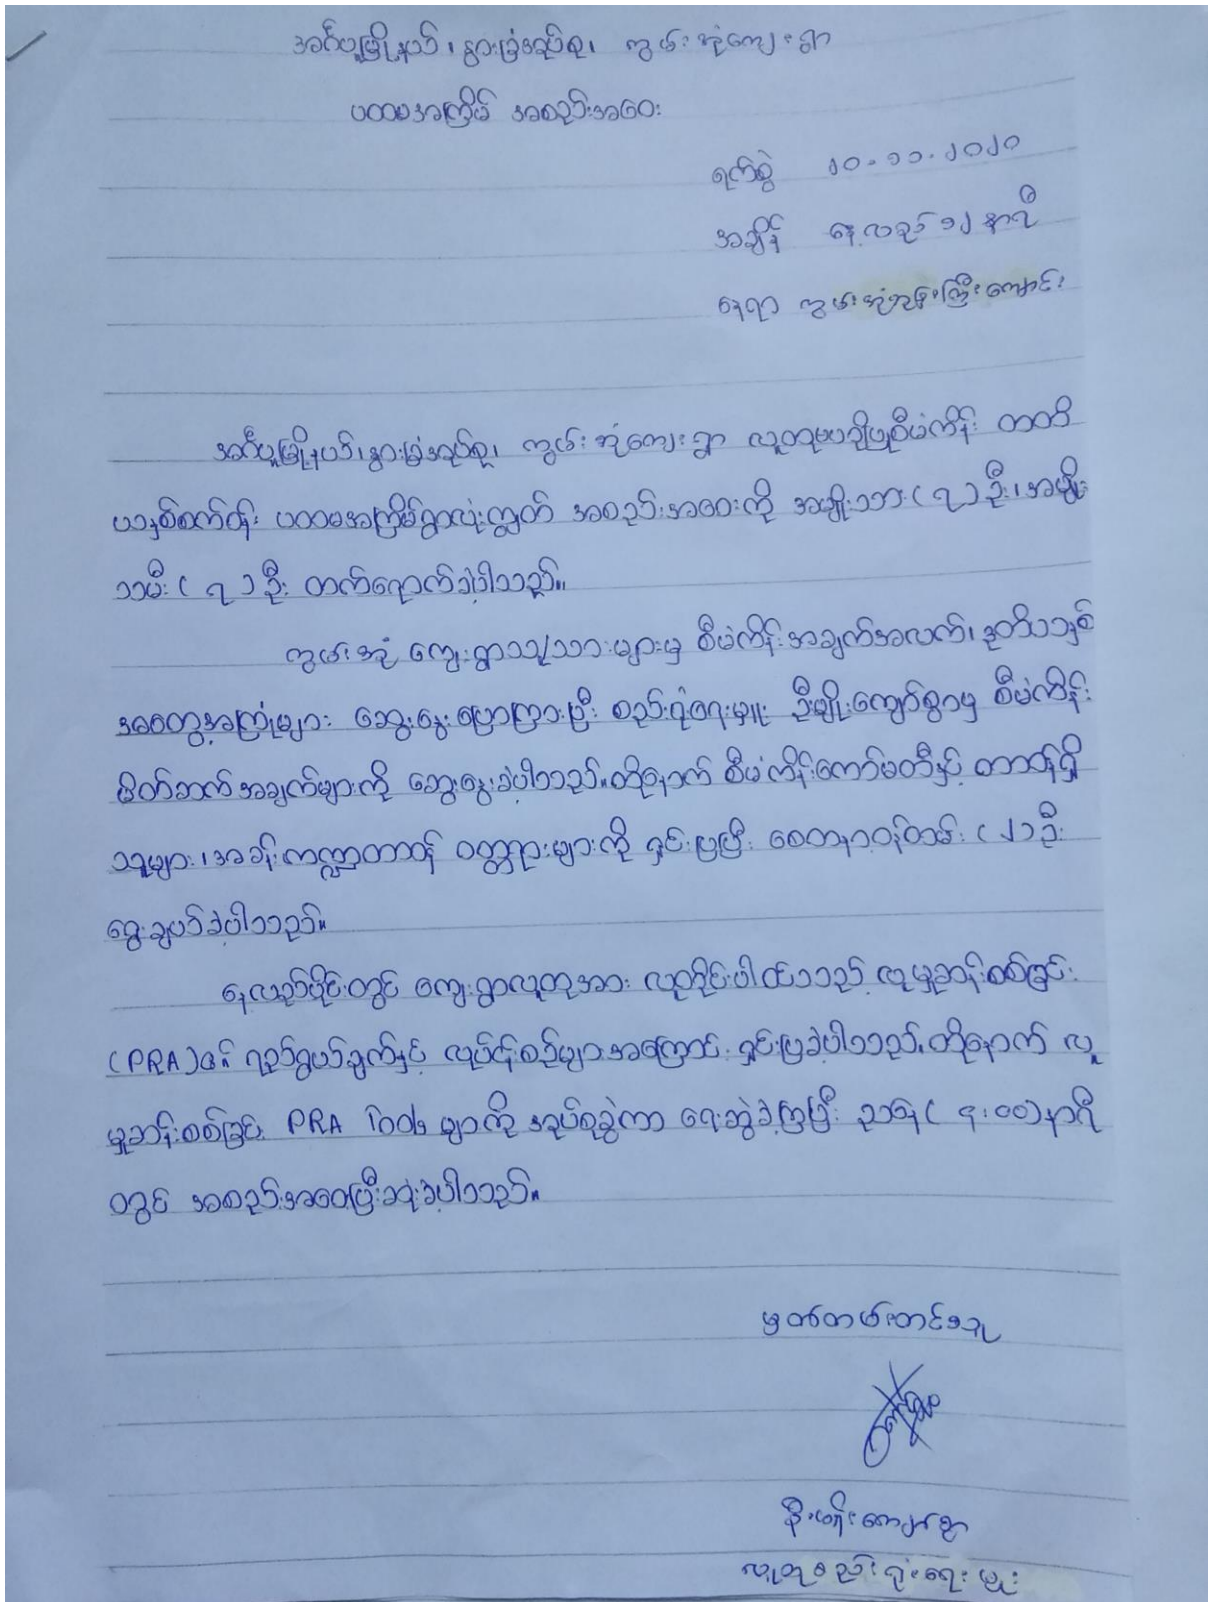 အင်္ဂပူမြို့နယ်၊ နွားခြံအုပ်စု၊ ကွမ်းအုံကျေးရွာ
ပထမအကြိမ် အစည်းအဝေး
ရက်စွဲ ၂၀-၁၁-၂၀၂၀
အချိန် နေ့လည် ၁၂ နာရီ
နေရာ ကွမ်းအုံဘုန်းကြီးကျောင်း
အင်္ဂပူမြို့နယ်၊ နွားခြံအုပ်စု၊ ကွမ်းအုံကျေးရွာ လူထုဗဟိုပြုစီမံကိန်း တတိ
ယနှစ်စက်ဝန်း ပထမအကြိမ်ရွာလုံးကျွတ် အစည်းအဝေးကို အမျိုးသား ( ၇ ) ဦး၊ အမျိုး
သမီး ( ၇ ) ဦး တက်ရောက်ခဲ့ပါသည်။
ကွမ်းအုံ ကျေးရွာသူ/သားများမှ စီမံကိန်းအချက်အလက်၊ ဒုတိယနှစ်
အတွေ့အကြုံများ ဆွေးနွေးပြောကြားပြီး စည်းရုံးရေးမှူး ဦးမျိုးကျော်စွာမှ စီမံကိန်း
မိတ်ဆက်အချက်များကို ဆွေးနွေးခဲ့ပါသည်။ ထို့နောက် စီမံကိန်းကော်မတီနှင့် တာဝန်ရှိ
သူများ၊ အခန်းကဏ္ဍတာဝန် ဝတ္တရားများကို ရှင်းပြပြီး စေတနာ့ဝန်ထမ်း ( ၂ ) ဦး
ရွေးချယ်ခဲ့ပါသည်။
နေ့လည်ပိုင်းတွင် ကျေးရွာလူထုအား လူတိုင်းပါဝင်သည့် လူမှုဆန်းစစ်ခြင်း
(PRA)၏ ရည်ရွယ်ချက်နှင့် လုပ်ငန်းစဉ်များအကြောင်း ရှင်းပြခဲ့ပါသည်။ ထို့နောက် လူ
မှုဆန်းစစ်ခြင်း PRA Tools များကို အုပ်စုခွဲကာ ရေးဆွဲခဲ့ကြပြီး ညနေ ( ၄:၀၀ ) နာရီ
တွင် အစည်းအဝေးပြီးဆုံးခဲ့ပါသည်။
မှတ်တမ်းတင်သူ
ဦးမျိုးကျော်စွာ
လူထုစည်းရုံးရေးမှူး